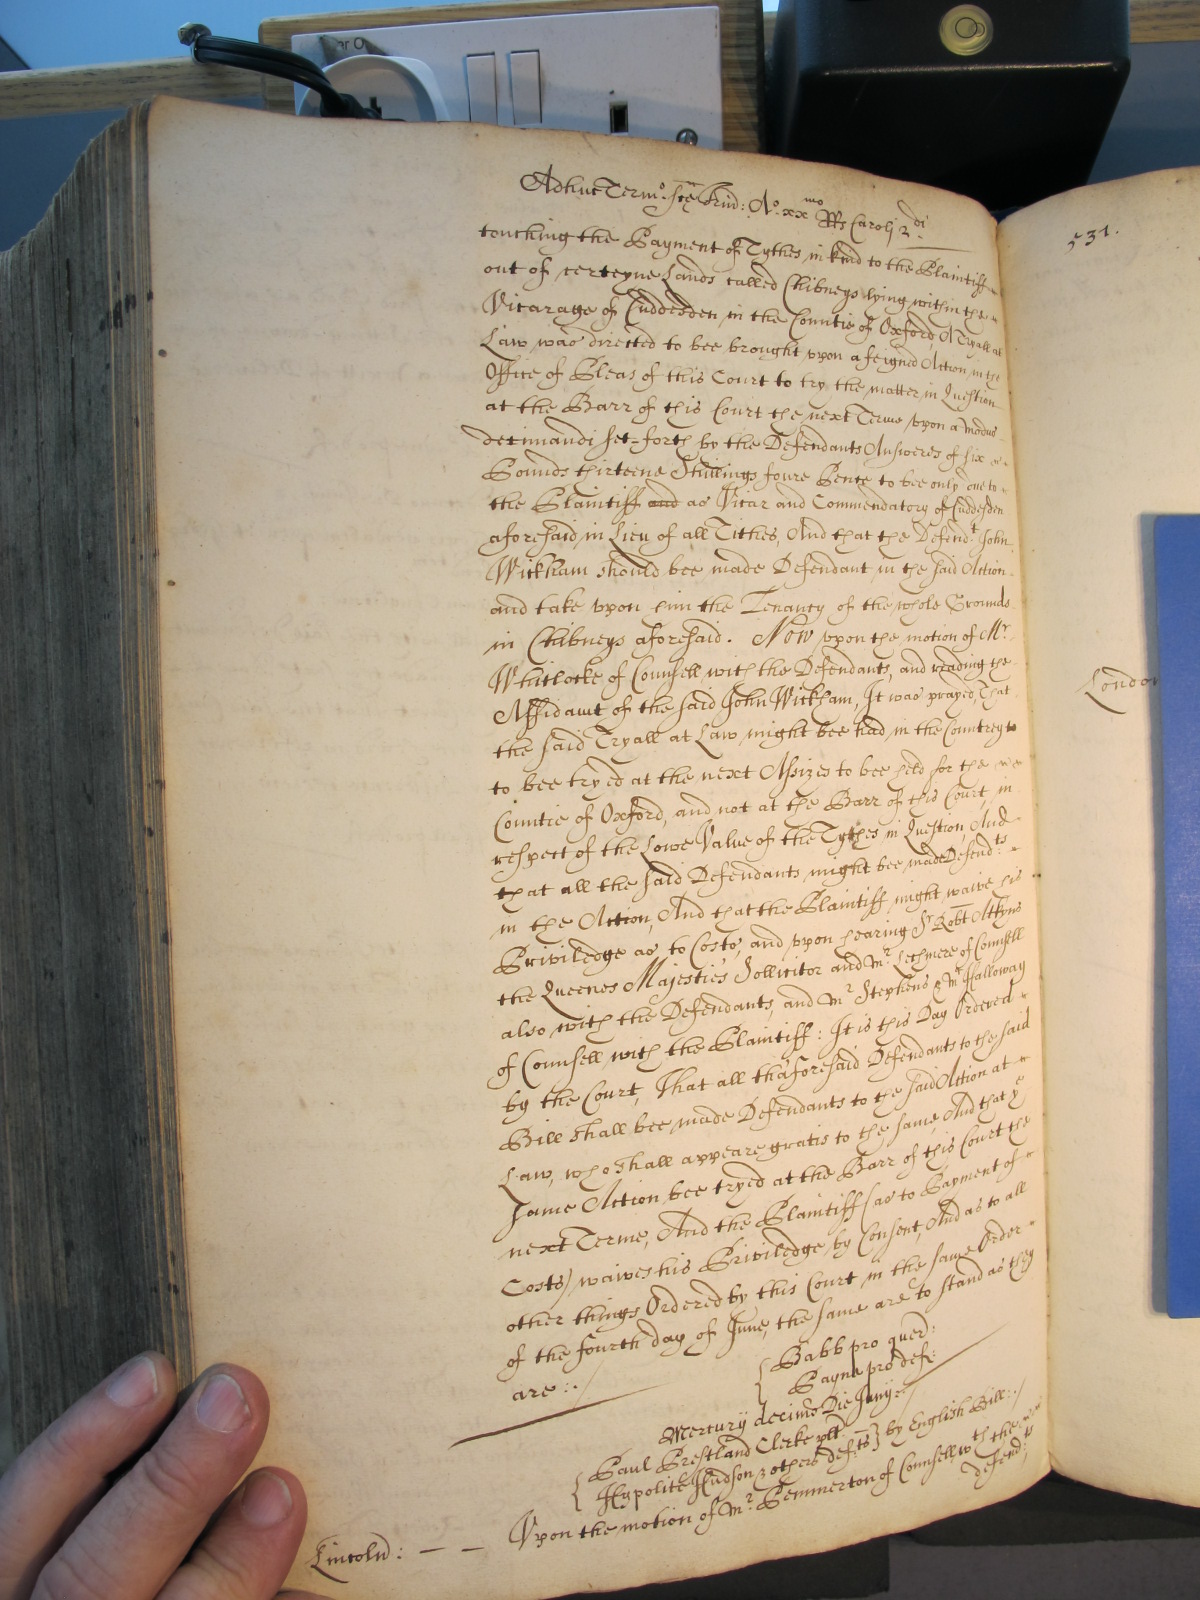 Adhuc Termo. sce Trin: Ao. xxmo Rs Caroli 2di.
touching the Payment of Tythes in kind to the Plaintiff
out of certeyne Lands called Chibneys lying within the
Vicarage of Cuddesden in the Countie of Oxford, A Tryall at
Law was directed to bee brought vpon a feigned Action in the
Office of Pleas of this Court to try the matter in Question
at the Barr of this Court the next Terme vpon a Modus
decimandi set-forth by the Defendants Answeres of six
Pounds thirteene Shillings foure Pence to bee only due to
the Plaintiff and as Vicar and Commendatory of Cuddesden
aforesaid in Lieu of all Tithes, And that the Defendt. John
Wickham should bee made Defendant in the said Action
and take vpon him the Tenancy of the whole Grounds
in Chibneys aforesaid. Now vpon the motion of Mr.
Whitlocke of Counsell with the Defendants, and reading the
Affidavit of the said John Wickham, It was prayed, That
the said Tryall at Law might bee had in the Countrey to
to bee tryed at the next Assizes to bee held for the
Countie of Oxford, and not at the Barr of this Court, in
respect of the Lowe Value of the Tythes in Question, And
that all the said Defendants might bee made Defendts:
in the Action, And that the Plaintiff might waive his
Priviledge as to Costs, and vpon hearing Sr. Robt Atkyns
the Queenes Majesties Sollicitor and Mr. Lechmere of Counsell
also with the Defendants, and Mr. Stephens & Mr Halloway
of Counsell with the Plaintiff: It is this Day Ordered
by the Court, That all thaforesaid Defendants to the said
Bill shall bee made Defendants to the said Action at
Law, who shall appeare gratis to the same, And that ye
same Action bee tryed at the Barr of this Court the
next Terme, And the Plaintiff (as to Payment of
Costs) waives his Priviledge by Consent, And as to all
other things Ordered by this Court in the same Order
of the fourth day of June, the same are to stand as they
are:.
Babb pro quer:
Payne pro defe:
Mercurij decimo Die Junij:
Paul Prestland Clerke plt:
Hypolite Hudson & others defets } by English Bill:.
Lincoln: — — Vpon the motion of Mr. Pemmerton of Counsell wth the
defendts
531.
London